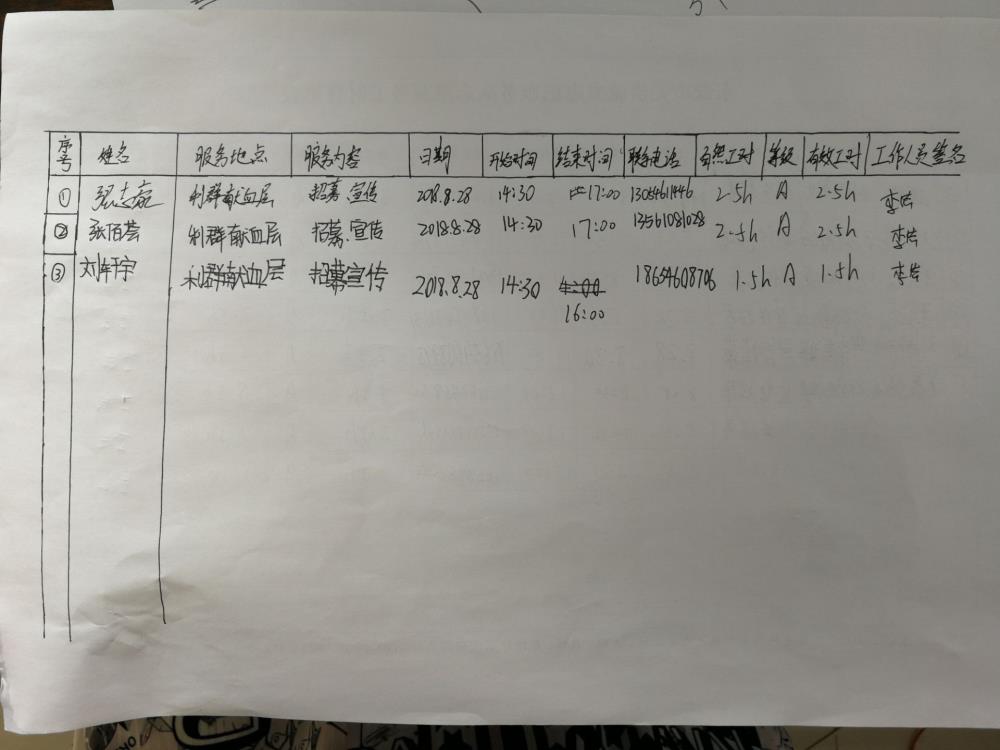 序号 姓名 服务地点 服务内容 日期 开始时间 结束时间 联系电话 自然工时 等级 有效工时 工作人员签名
① 张志 利群献血屋 招募.宣传 2018.8.28 14:30 17:00 2.5h A 2.5h 李
② 张佰荟 利群献血屋 招募.宣传 2018.8.28 14:30 17:00 13561081028 2.5h A 2.5h 李
③ 刘轩宇 利群献血屋 招募宣传 2018.8.28 14:30 18654608706 1.5h A 1.5h 李
16:00